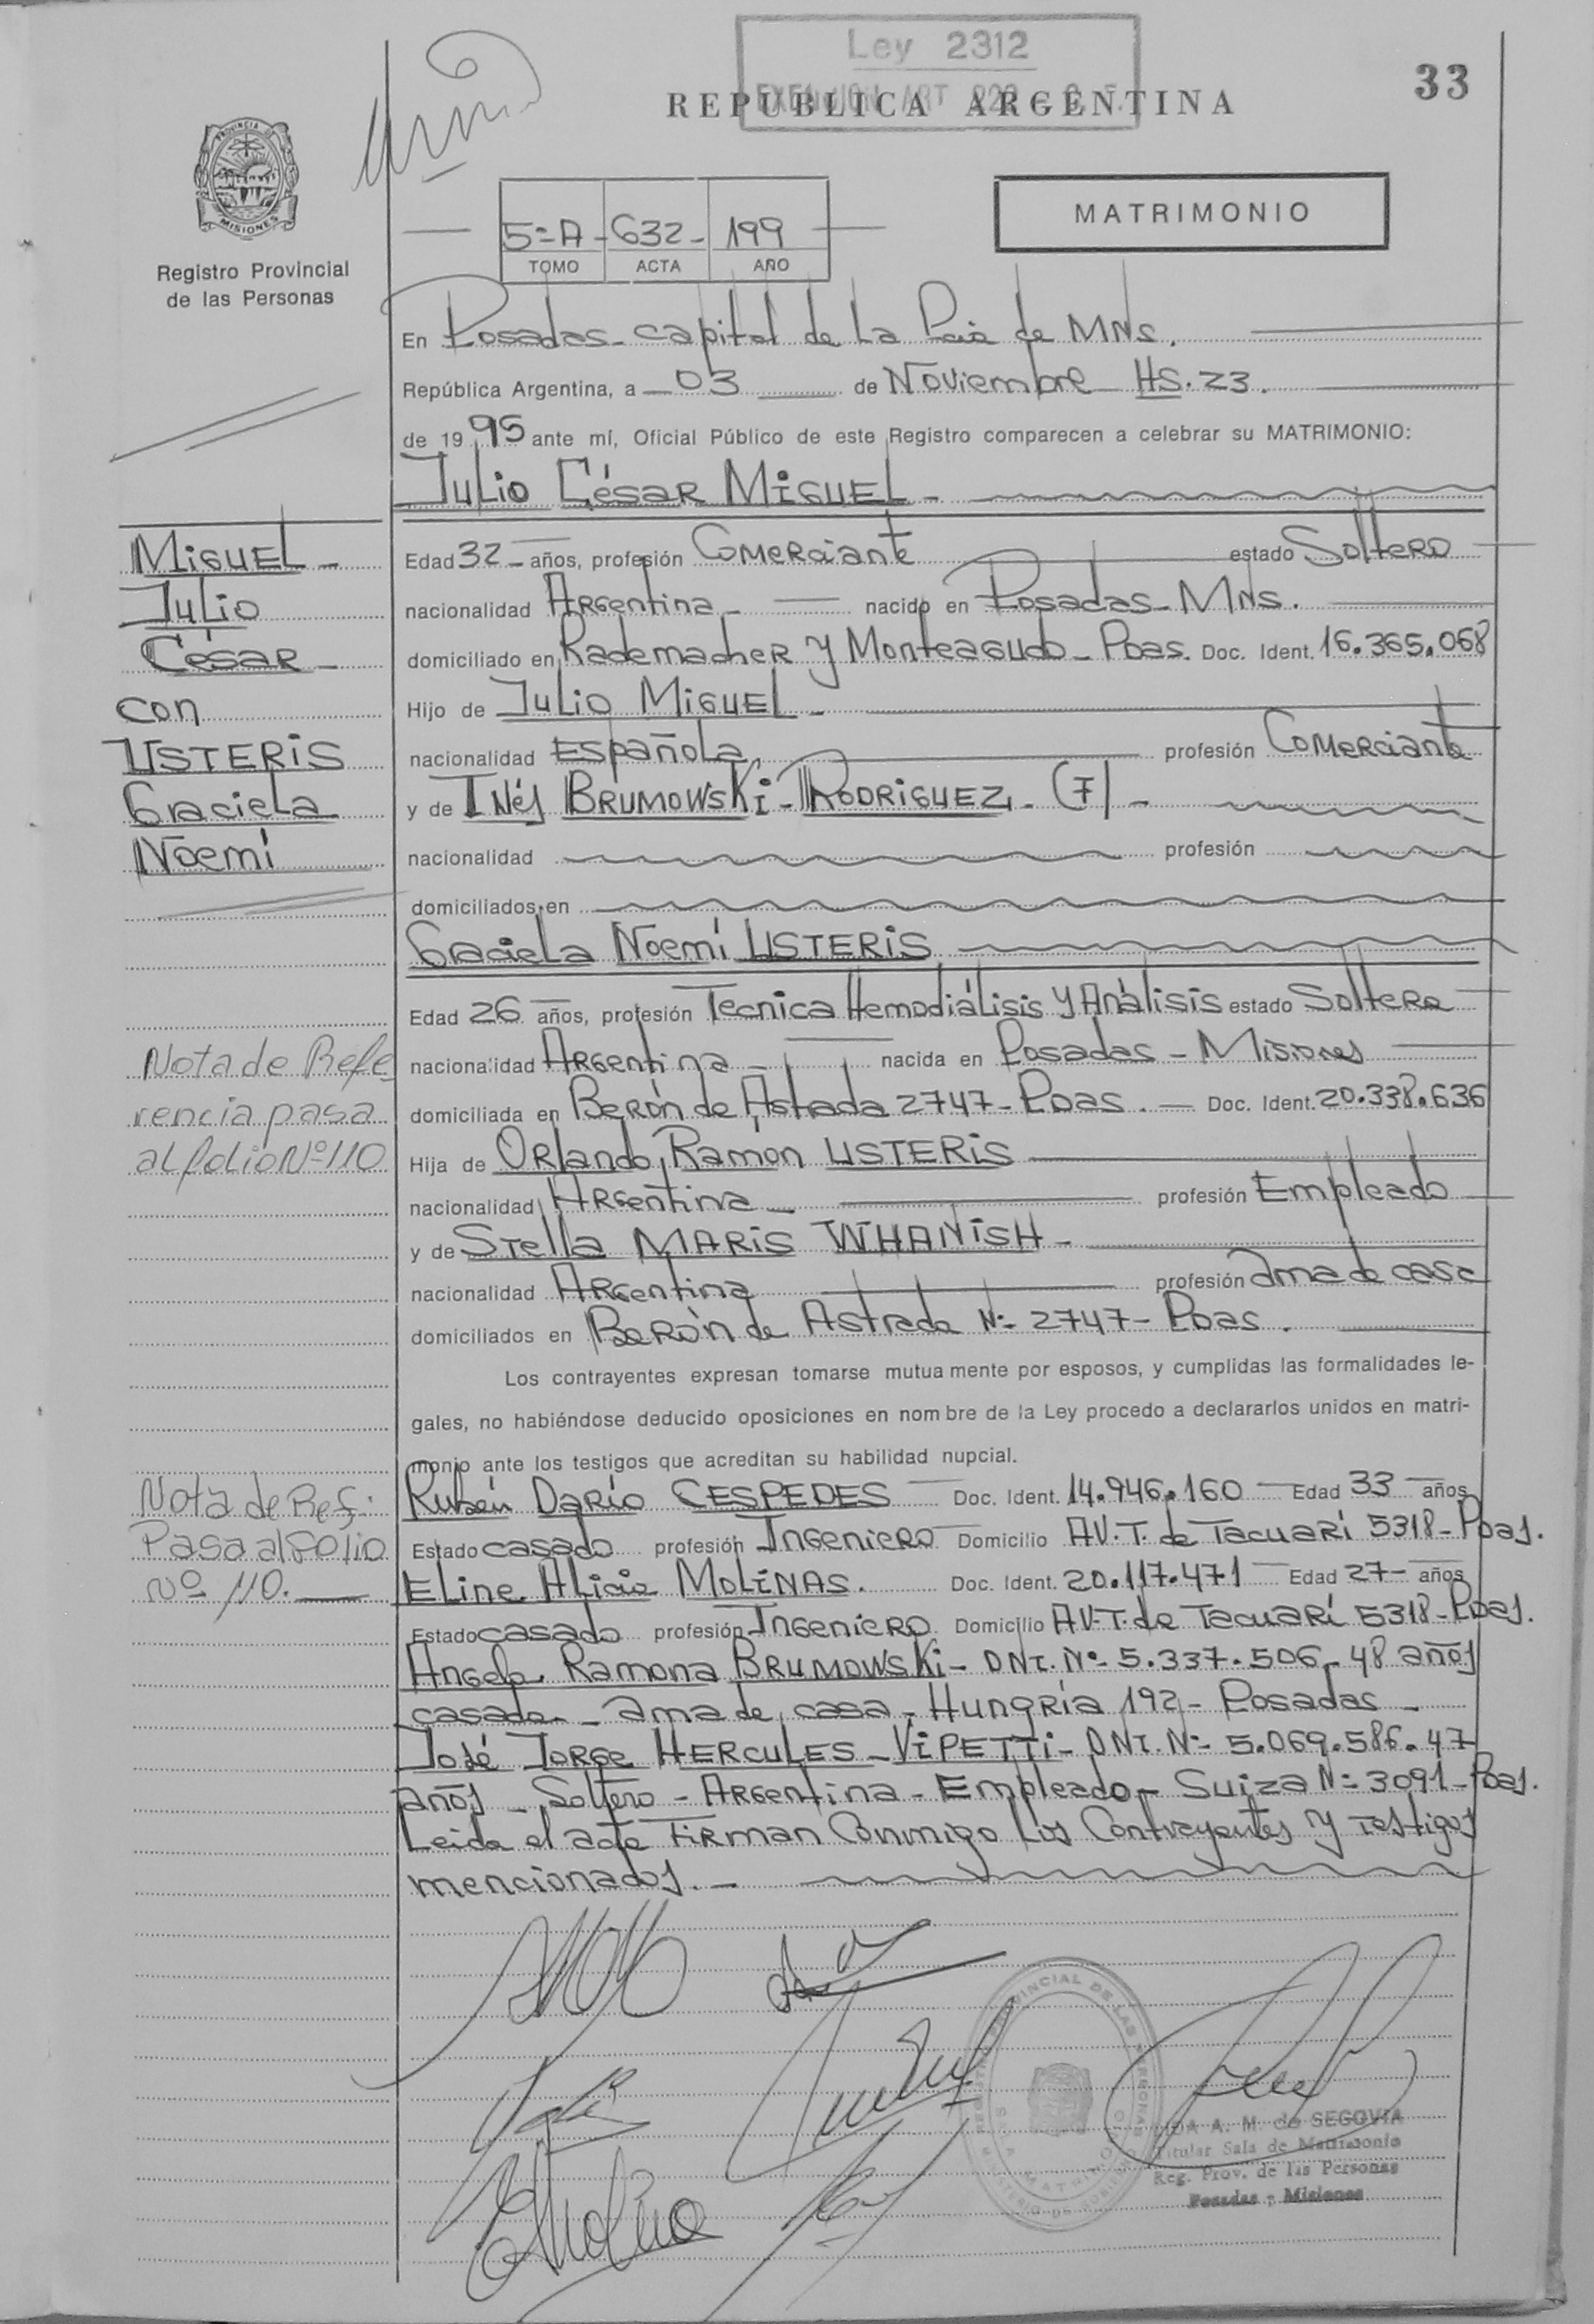 Ley 2312
REPUBLICA ARGENTINA
33
PROVINCIA DE
MISIONES
Registro Provincial
de las Personas
5=A - 632 - 199
TOMO ACTA AÑO
MATRIMONIO
En Posadas - capital de La Pcia de MNS.
República Argentina, a 03 de Noviembre HS. 23.
de 1995 ante mí, Oficial Público de este Registro comparecen a celebrar su MATRIMONIO:
Julio César MIGUEL -
Edad 32 - años, profesión Comerciante estado Soltero
nacionalidad Argentina - nacido en Posadas - MNS.
domiciliado en Rademacher y Monteagudo - Pdas. Doc. Ident. 16.365.068
Hijo de Julio MIGUEL -
nacionalidad Española profesión Comerciante
y de Inés BRUMOWSKI - RODRIGUEZ, - (F) -
nacionalidad profesión
domiciliados en
Graciela Noemí USTERIS
Edad 26 años, profesión Tecnica Hemodiálisis y Análisis estado Soltera
nacionalidad Argentina - nacida en Posadas - Misiones
domiciliada en Berón de Astrada 2747 - Pdas. - Doc. Ident. 20.338.636
Hija de Orlando Ramon USTERIS
nacionalidad Argentina - profesión Empleado
y de Stella MARIS WHANISH -
nacionalidad Argentina profesión ama de casa
domiciliados en Berón de Astrada Nº 2747 - Pdas.
Los contrayentes expresan tomarse mutuamente por esposos, y cumplidas las formalidades le-
gales, no habiéndose deducido oposiciones en nombre de la Ley procedo a declararlos unidos en matri-
monio ante los testigos que acreditan su habilidad nupcial.
Rubén Darío CESPEDES Doc. Ident. 14.946.160 Edad 33 años
Estado casado profesión Ingeniero Domicilio AV. T. de Tacuarí 5318 - Pdas.
Eline Alicia MOLINAS. Doc. Ident. 20.117.471 Edad 27 - años
Estado casado profesión Ingeniero Domicilio AV. T. de Tacuarí 5318 - Pdas.
Angela Ramona BRUMOWSKI - DNI. Nº 5.337.506 - 48 años
casada - ama de casa - Hungría 192 - Posadas -
José Jorge HERCULES - VIPETTI - DNI. Nº 5.069.586. 47
años - Soltero - Argentina - Empleado - Suiza Nº 3091 - Pdas.
Leida el acta Firman Conmigo Los Contrayentes y Testigos
mencionados. -
MIGUEL -
Julio
César -
con
USTERIS
Graciela
Noemí
Nota de Refe
rencia pasa
al folio Nº 110
Nota de Ref:
Pasa al folio
Nº 110.
A. M. de SEGOVIA
Titular Sala de Matrimonio
Reg. Prov. de las Personas
Posadas - Misiones